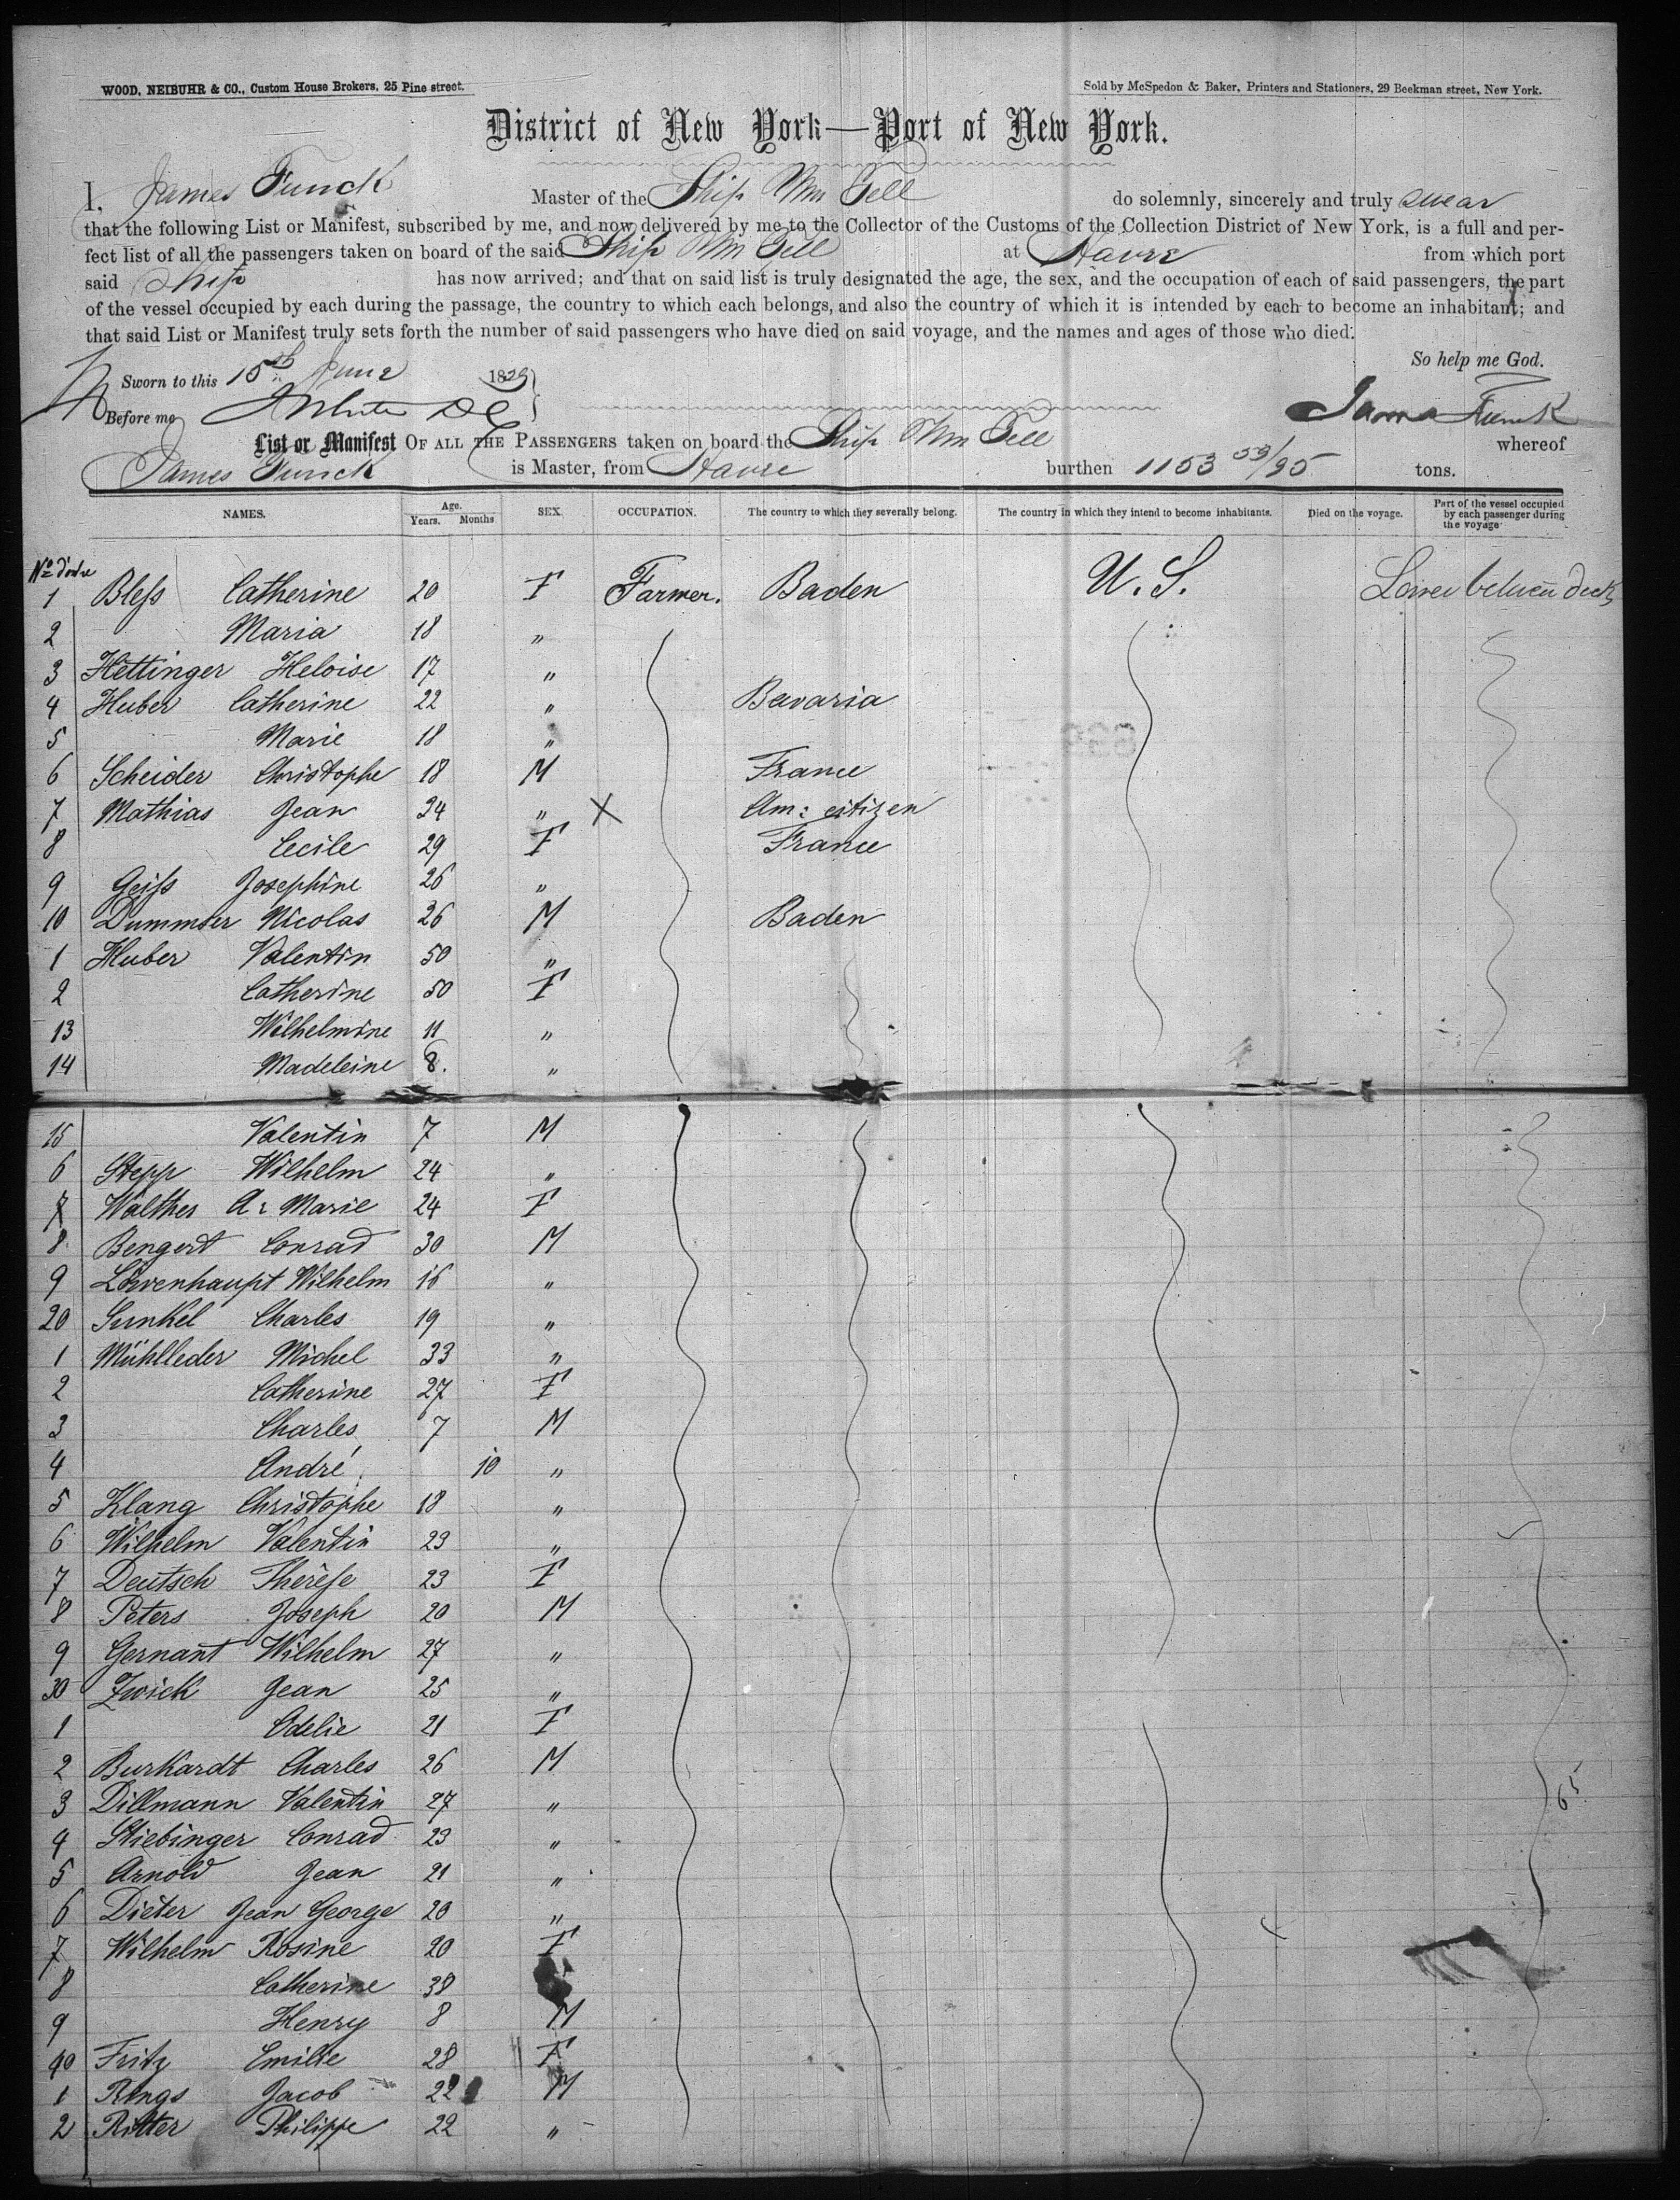 WOOD, NEIBUHR & CO., Custom House Brokers, 25 Pine street.
Sold by McSpedon & Baker, Printers and Stationers, 29 Beekman street, New York.
District of New York—Port of New York.
I, James Funck Master of the Ship Wm Tell do solemnly, sincerely and truly swear
that the following List or Manifest, subscribed by me, and now delivered by me to the Collector of the Customs of the Collection District of New York, is a full and per-
fect list of all the passengers taken on board of the said Ship Wm Tell at Havre from which port
said Ship has now arrived; and that on said list is truly designated the age, the sex, and the occupation of each of said passengers, the part
of the vessel occupied by each during the passage, the country to which each belongs, and also the country of which it is intended by each to become an inhabitant; and
that said List or Manifest truly sets forth the number of said passengers who have died on said voyage, and the names and ages of those who died.
So help me God.
Sworn to this 15th June
Before me James Funck
List or Manifest OF ALL THE PASSENGERS taken on board the Ship Wm Tell whereof
James Funck is Master, from Havre burthen 1153 53/95 tons.
NAMES. Age. Years. Months SEX. OCCUPATION. The country to which they severally belong. The country in which they intend to become inhabitants. Died on the voyage. Part of the vessel occupied by each passenger during the voyage
No d'ordre
1 Bless Catherine 20 F Farmer. Baden U. S. Lower between decks
2 Maria 18 "
3 Hettinger Heloise 17 "
4 Huber Catherine 22 " Bavaria
5 Marie 18 "
6 Scheider Christophe 18 M France
7 Mathias Jean 34 " X Am: citizen
8 Cecile 29 F France
9 Geiss Josephine 26 "
10 Dummser Nicolas 26 M Baden
1 Huber Valentin 50 "
2 Catherine 50 F
13 Wilhelmine 11 "
14 Madeleine 8. "
15 Valentin 7 M
6 Stepp Wilhelm 24 "
7 Walther A: Marie 24 F
8 Bengert Conrad 30 M
9 Löwenhaupt Wilhelm 16 "
20 Gunkel Charles 19 "
1 Mühlleder Michel 33 "
2 Catherine 27 F
3 Charles 7 M
4 André 10 "
5 Klang Christophe 18 "
6 Wilhelm Valentin 23 "
7 Deutsch Thérèse 23 F
8 Peters Joseph 20 M
9 Gernant Wilhelm 27 "
30 Zwick Jean 25 "
1 Odelie 21 F
2 Burkardt Charles 26 M
3 Dillmann Valentin 27 " 65
4 Stiebinger Conrad 23 "
5 Arnold Jean 21 "
6 Dieter Jean George 20 "
7 Wilhelm Rosine 20 F
8 Catherine 38
9 Henry 8 M
40 Fritz Emilie 28 F
1 Rings Jacob 22 M
2 Ritter Philippe 22 "